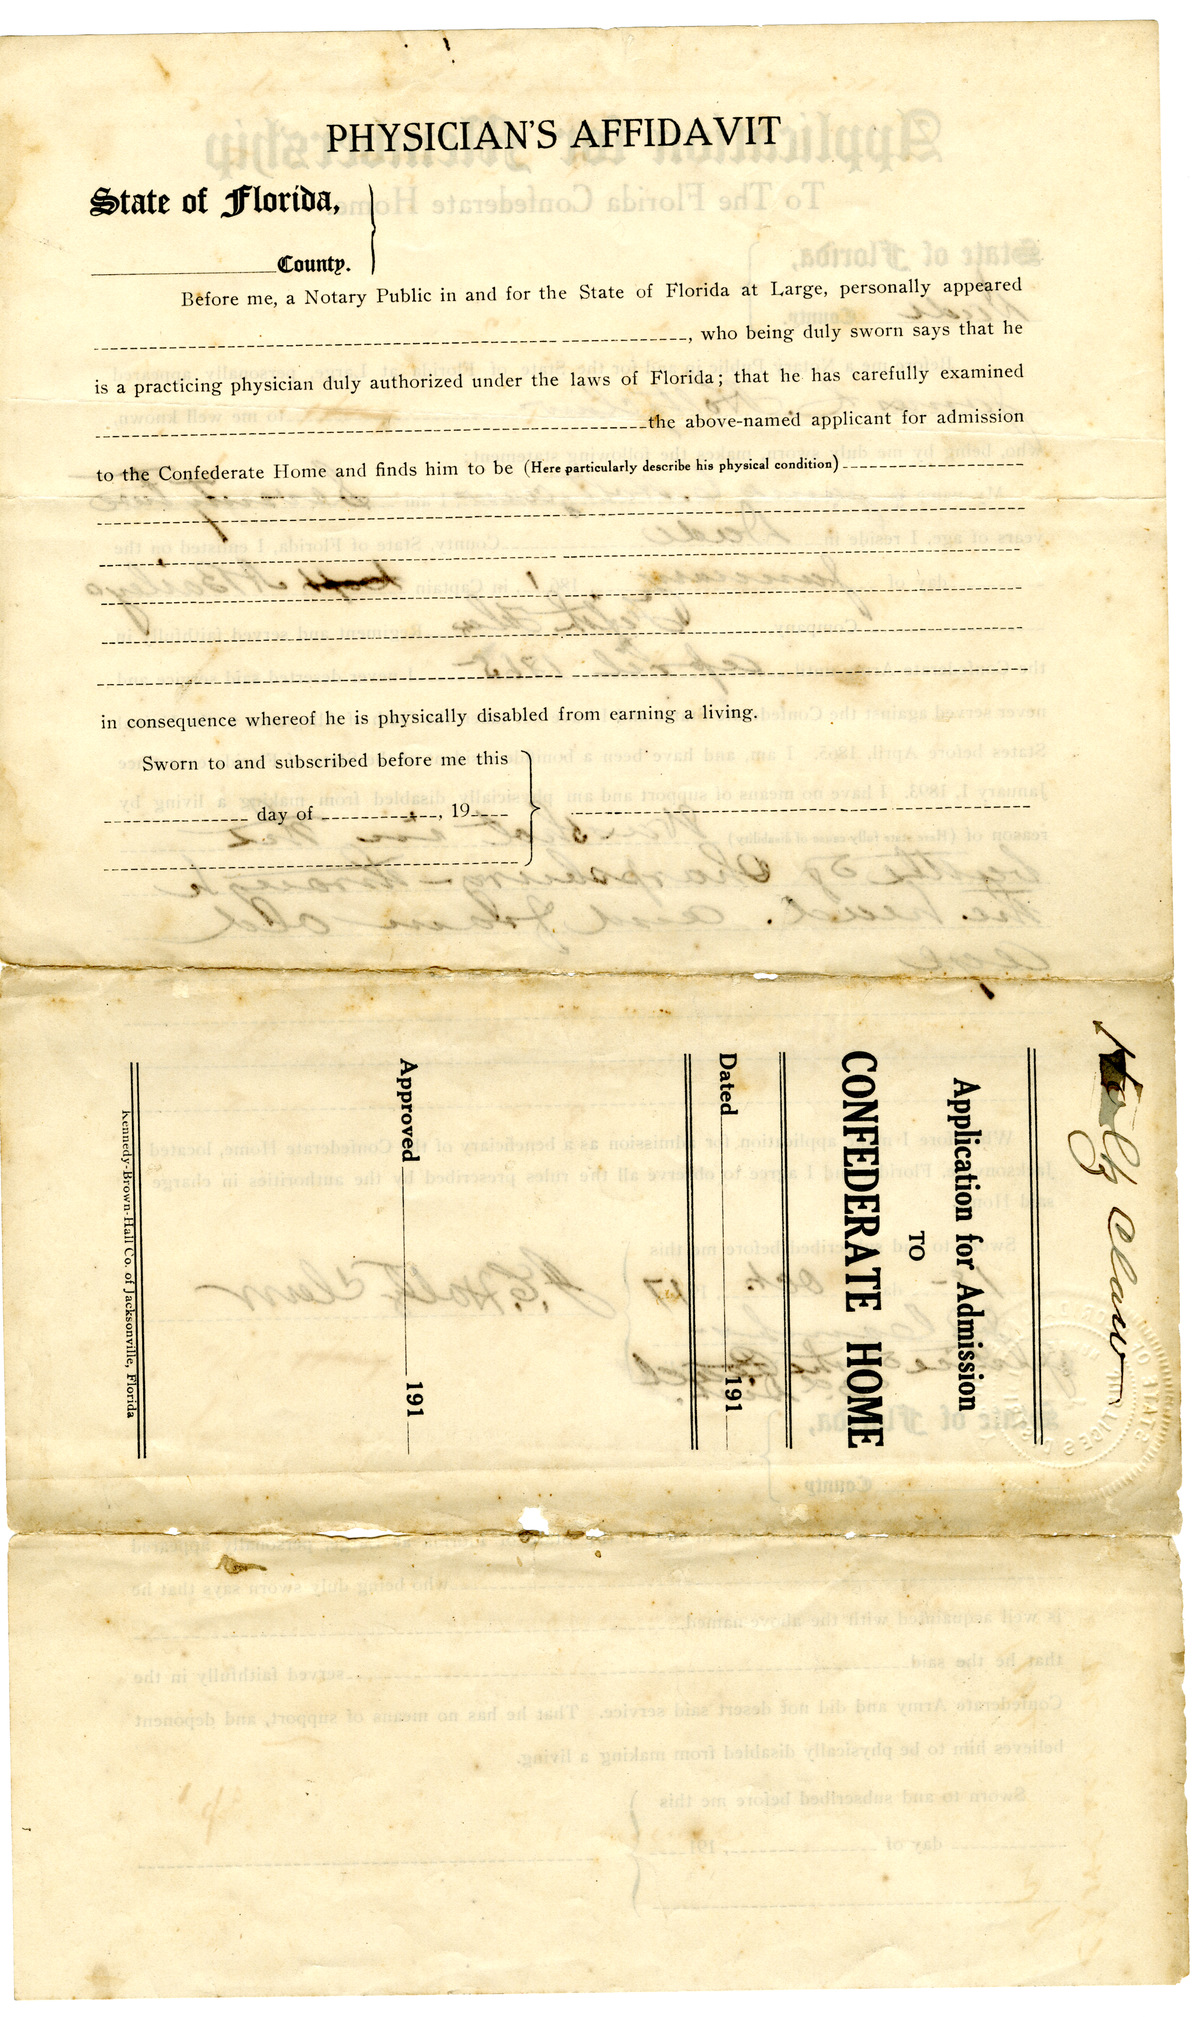 PHYSICIAN'S AFFIDAVIT
State of Florida,
County.
Before me, a Notary Public in and for the State of Florida at Large, personally appeared
, who being duly sworn says that he
is a practicing physician duly authorized under the laws of Florida; that he has carefully examined
the above-named applicant for admission
to the Confederate Home and finds him to be (Here particularly describe his physical condition)
in consequence whereof he is physically disabled from earning a living.
Sworn to and subscribed before me this
day of , 19
Holtz Claw
Application for Admission
TO
CONFEDERATE HOME
Dated 191
Approved 191
Kennedy-Brown-Hall Co. of Jacksonville, Florida